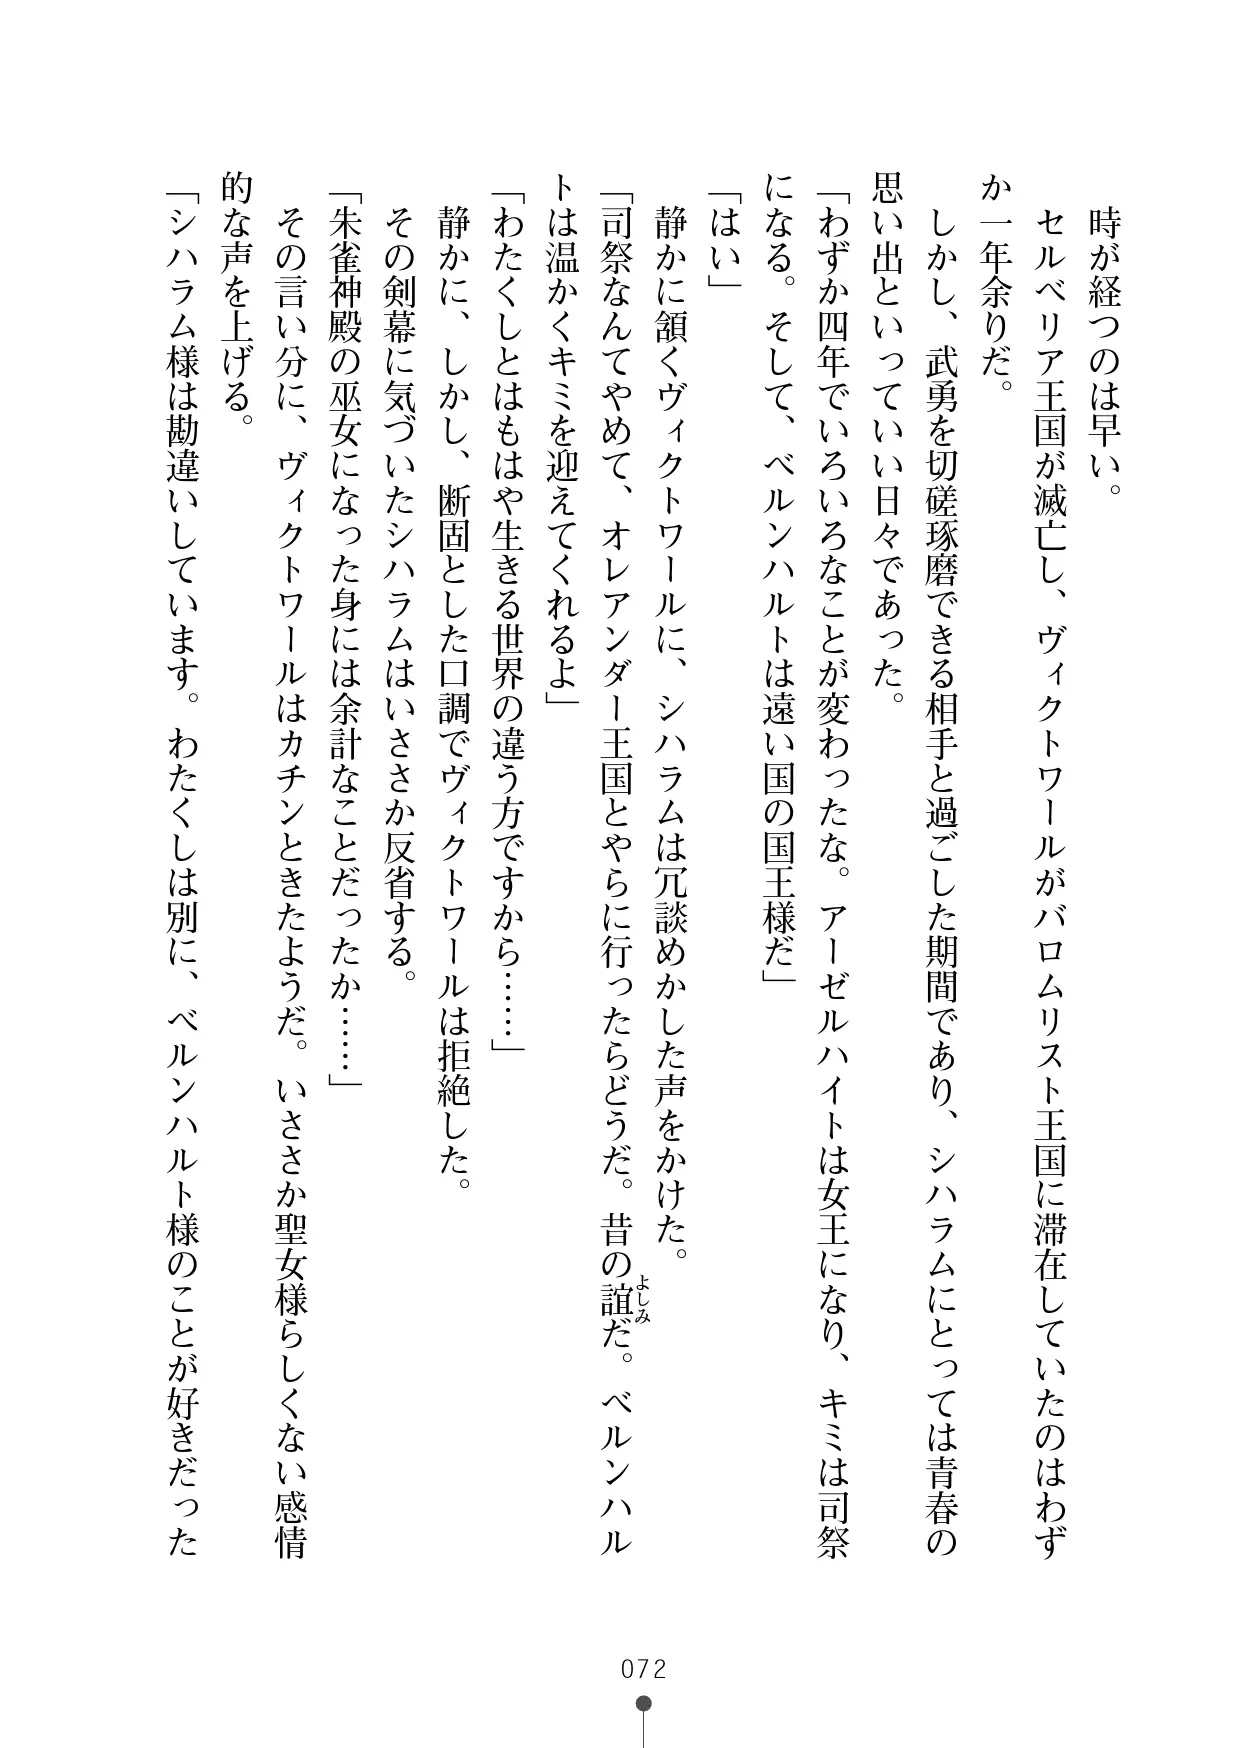 時が経つのは早い。
セルベリア王国が滅亡し、ヴィクトワールがバロムリスト王国に滞在していたのはわず
か一年余りだ。
しかし、武勇を切磋琢磨できる相手と過ごした期間であり、シハラムにとっては青春の
思い出といっていい日々であった。
「わずか四年でいろいろなことが変わったな。アーゼルハイトは女王になり、キミは司祭
になる。そして、ベルンハルトは遠い国の国王様だ」
「はい」
静かに頷くヴィクトワールに、シハラムは冗談めかした声をかけた。
「司祭なんてやめて、オレアンダー王国とやらに行ったらどうだ。昔の誼だ。ベルンハル
よしみ
トは温かくキミを迎えてくれるよ」
「わたくしとはもはや生きる世界の違う方ですから……」
静かに、しかし、断固とした口調でヴィクトワールは拒絶した。
その剣幕に気づいたシハラムはいささか反省する。
「朱雀神殿の巫女になった身には余計なことだったか……」
その言い分に、ヴィクトワールはカチンときたようだ。いささか聖女様らしくない感情
的な声を上げる。
「シハラム様は勘違いしています。わたくしは別に、ベルンハルト様のことが好きだった
072